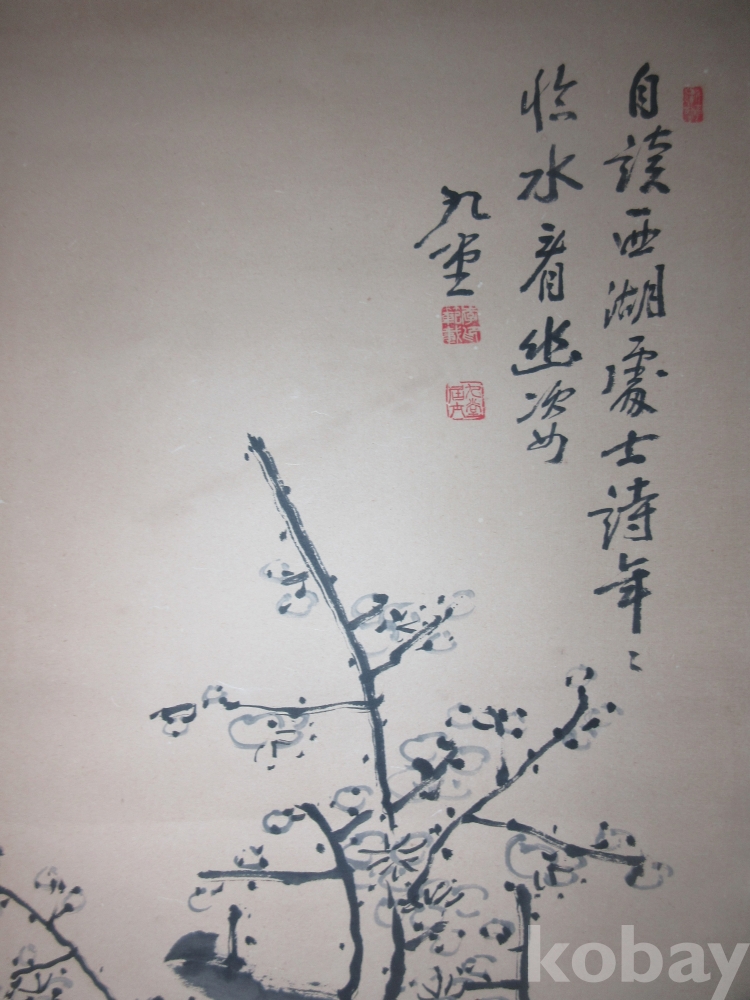 自讀西湖處士詩年〻
臨水看幽姿
九堂
kobay